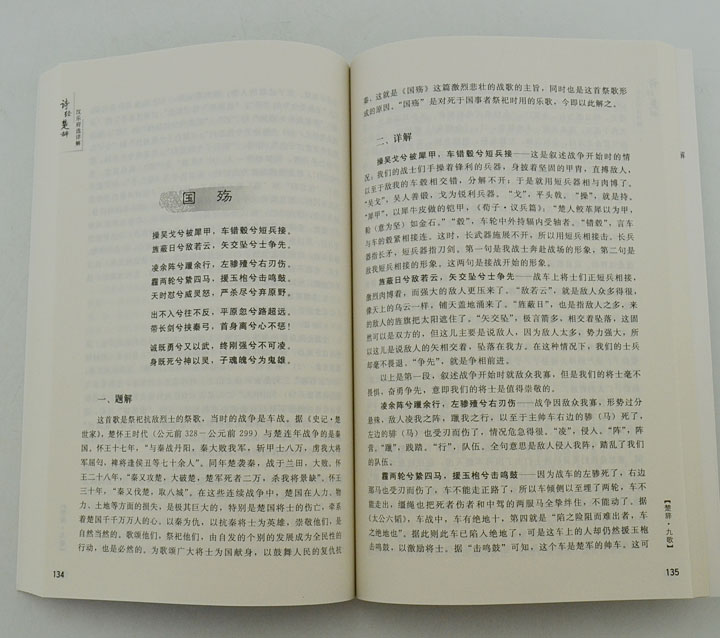 诗经楚辞
国殇
操吴戈兮被犀甲，车错毂兮短兵接。
旌蔽日兮敌若云，矢交坠兮士争先。
凌余阵兮躐余行，左骖殪兮右刃伤。
霾两轮兮絷四马，援玉枹兮击鸣鼓。
天时怼兮威灵怒，严杀尽兮弃原野。
出不入兮往不反，平原忽兮路超远。
带长剑兮挟秦弓，首身离兮心不惩！
诚既勇兮又以武，终刚强兮不可凌。
身既死兮神以灵，子魂魄兮为鬼雄。
一、题解
这首歌是祭祀抗敌烈士的祭歌，当时的战争是车战。据《史记·楚
世家》，楚怀王时代（公元前328－公元前299）与楚连年战争的是秦
国。怀王十七年，“与秦战丹阳，秦大败我军，斩甲士八万，虏我大将
军屈匄，裨将逢侯丑等七十余人”。同年楚袭秦，战于兰田，大败。怀
王二十八年，“秦又攻楚，大破楚，楚军死者二万，杀我将景缺”。怀王
三十年，“秦又伐楚，取八城”。在这些连续战争中，楚国在人力、物
力、土地等方面的损失，是极其巨大的，特别是楚国将士的伤亡，牵系
着楚国千千万万人的心。以秦为仇，以抗秦将士为英雄，崇敬他们，是
自然当然的。歌颂他们，祭祀他们，由自发的个别的发展成为全民性的
行动，也是必然的。为歌颂广大将士为国献身，以鼓舞人民的复仇抗
134
秦，这就是《国殇》这篇激烈悲壮的战歌的主旨，同时也是这首祭歌形
成的原因。“国殇”是对死于国事者祭祀时用的乐歌，今即以此解之。
二、详解
操吴戈兮被犀甲，车错毂兮短兵接——这是叙述战争开始时的情
况。我们的战士们手操着锋利的兵器，身披着坚固的甲胄，直搏敌人，
以至于敌我的车毂相交错，分解不开；于是就用短兵器相与肉博了。
“吴戈”，吴人善锻，戈为锐利兵器。“戈”，平头戟。“操”，就是持。
“犀甲”，以犀牛皮做的铠甲，《荀子·议兵篇》：“楚人鲛革犀以为甲，
鞈（意为坚）如金石。”“毂”，车轮中外持辐内受轴者。“错毂”，言车
与车的毂紧相接连。这时，长武器施展不开，所以用短兵相接击。长兵
器指长矛，短兵器指刀剑。第一句是我战士奔赴战场的形象，第二句是
敌我短兵相接的形象。这两句是接战开始的形象。
旌蔽日兮敌若云，矢交坠兮士争先——战车上将士们正短兵相接，
激烈肉博着，而强大的敌人更压来了。“敌若云”，就是敌人众多得很，
像天上的乌云一样，铺天盖地涌来了。“旌蔽日”，也是指敌人之多，来
的敌人的旌旗把太阳遮住了。“矢交坠”，极言箭多，相交着坠落，这固
然可以是双方的，但这儿主要是说敌人，因为敌人太多，势力强大，所
以这儿是说敌人的矢相交着，坠落在我方。在这种情况下，我们的士兵
却毫不畏退。“争先”，就是争相前进。
以上是第一段，叙述战争开始时就敌众我寡，但是我们的将士毫不
畏惧，奋勇争先，意即我们的将士是值得崇敬的。
凌余阵兮躐余行，左骖殪兮右刃伤——战争因敌众我寡，形势过分
悬殊，敌人凌我之阵，躐我之行，以至于主帅车右边的骖（马）死了，
左边的骖（马）也受刃而伤了，情况危急得很。“凌”，侵入。“阵”，阵
营。“躐”，践踏。“行”，队伍。全句意思是敌人侵入我阵，踏乱了我们
的队伍。
霾两轮兮絷四马，援玉枹兮击鸣鼓——因为战车的左骖死了，右边
那马也受刃而伤了，车不能走正路了，所以车倾倒以至埋了两轮，车不
能走出；缰绳也把死者伤者和中驾的两服马全絷绊住，不能动了。据
《太公六韬》，车战中，车有绝地十，第四就是“陷之险阻而难出者，车
之绝地也”。据此则此车已陷入绝地了，可是这车上的人却仍然援玉枹
击鸣鼓，以激励将士。据“击鸣鼓”可知，这个车是楚军的帅车。这可
【楚辞·九歌】
135